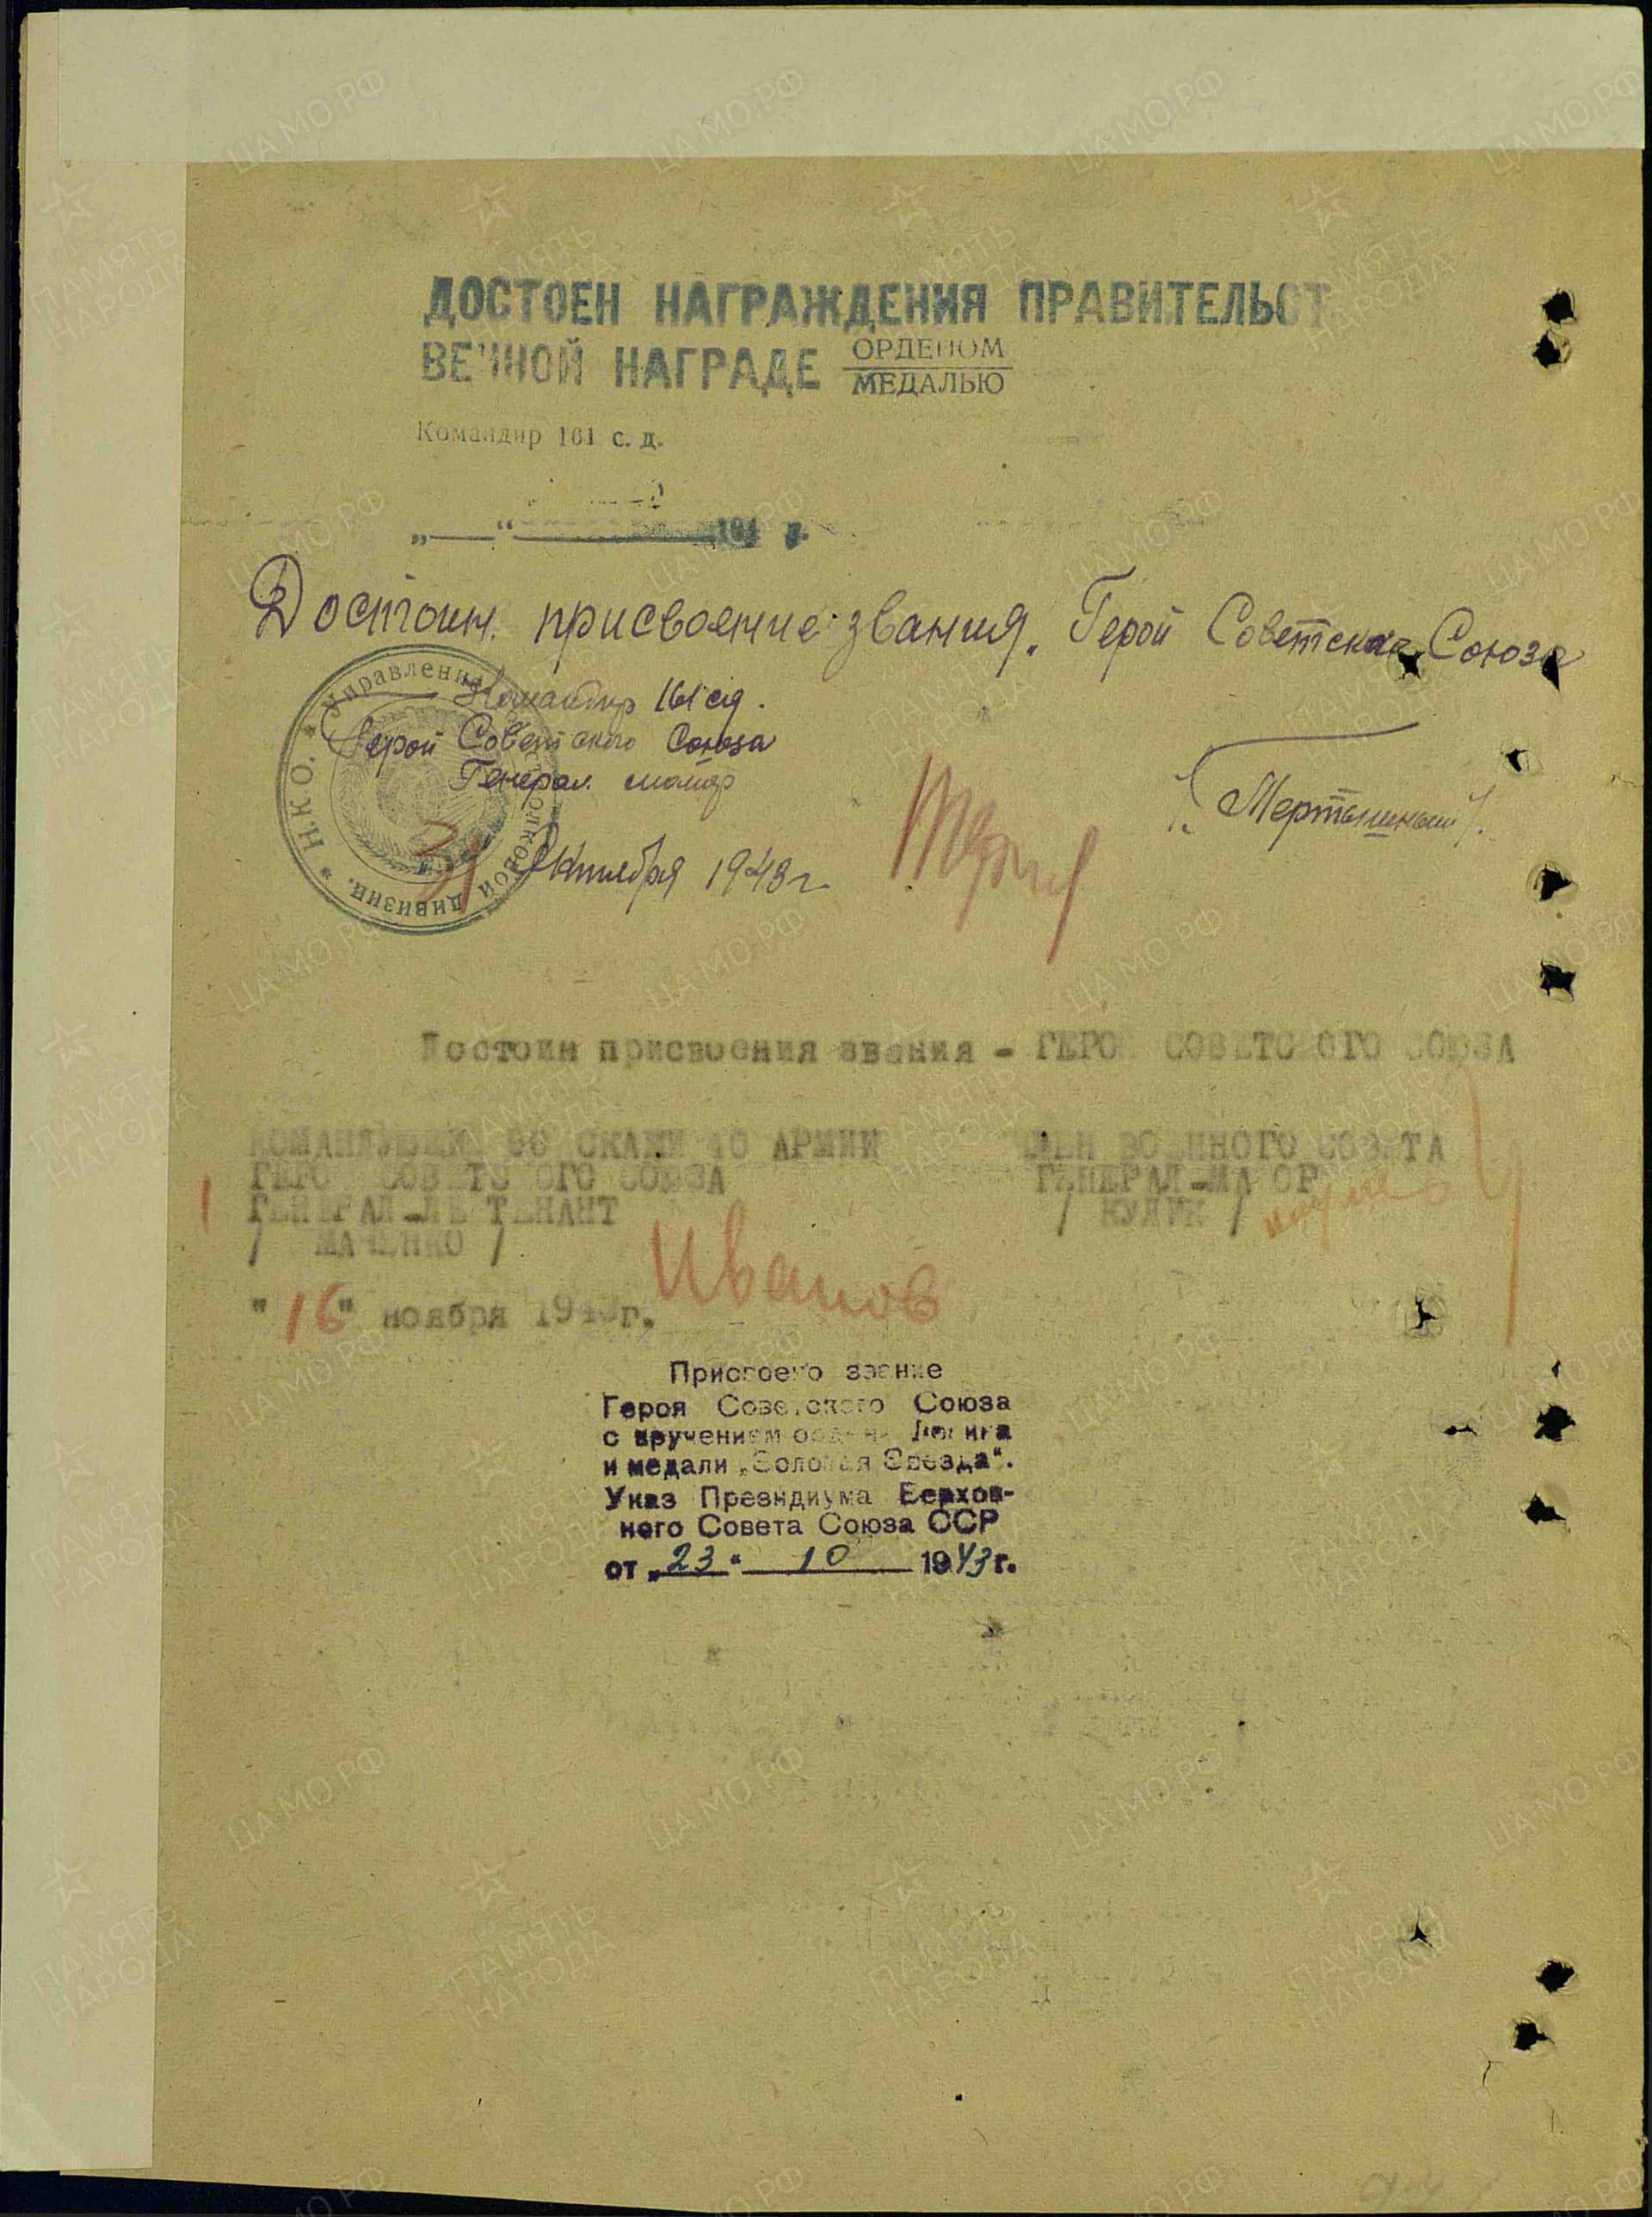 ДОСТОЕН НАГРАЖДЕНИЯ ПРАВИТЕЛЬСТ
ВЕННОЙ НАГРАДЕ ОРДЕНОМ
МЕДАЛЬЮ
Командир 161 с. д.
„ “ 194 г.
Достоин. присвоение звания. Герой Советская Союза
Командир 161 сд.
Герой Советского Союза
Генерал майор
31 Октября 1943 г.
* Н.К.О. * Управление дивизии.
Достоин присвоения звания - ГЕРОЙ СОВЕТСКОГО СОЮЗА
КОМАНДУЮЩИЙ ВОЙСКАМИ 40 АРМИИ ЧЛЕН ВОЕННОГО СОВЕТА
ГЕРОЙ СОВЕТСКОГО СОЮЗА ГЕНЕРАЛ-МАЙОР
ГЕНЕРАЛ-ЛЕЙТЕНАНТ / КУЛИК /
/ ЖМАЧЕНКО /
Иванов
"16" ноября 1943г.
Присвоено звание
Героя Советского Союза
с вручением ордена Ленина
и медали „Золотая Звезда“.
Указ Президиума Верхов-
ного Совета Союза ССР
от „23“ 10 1943 г.
ПАМЯТЬ НАРОДА
ЦАМО.РФ